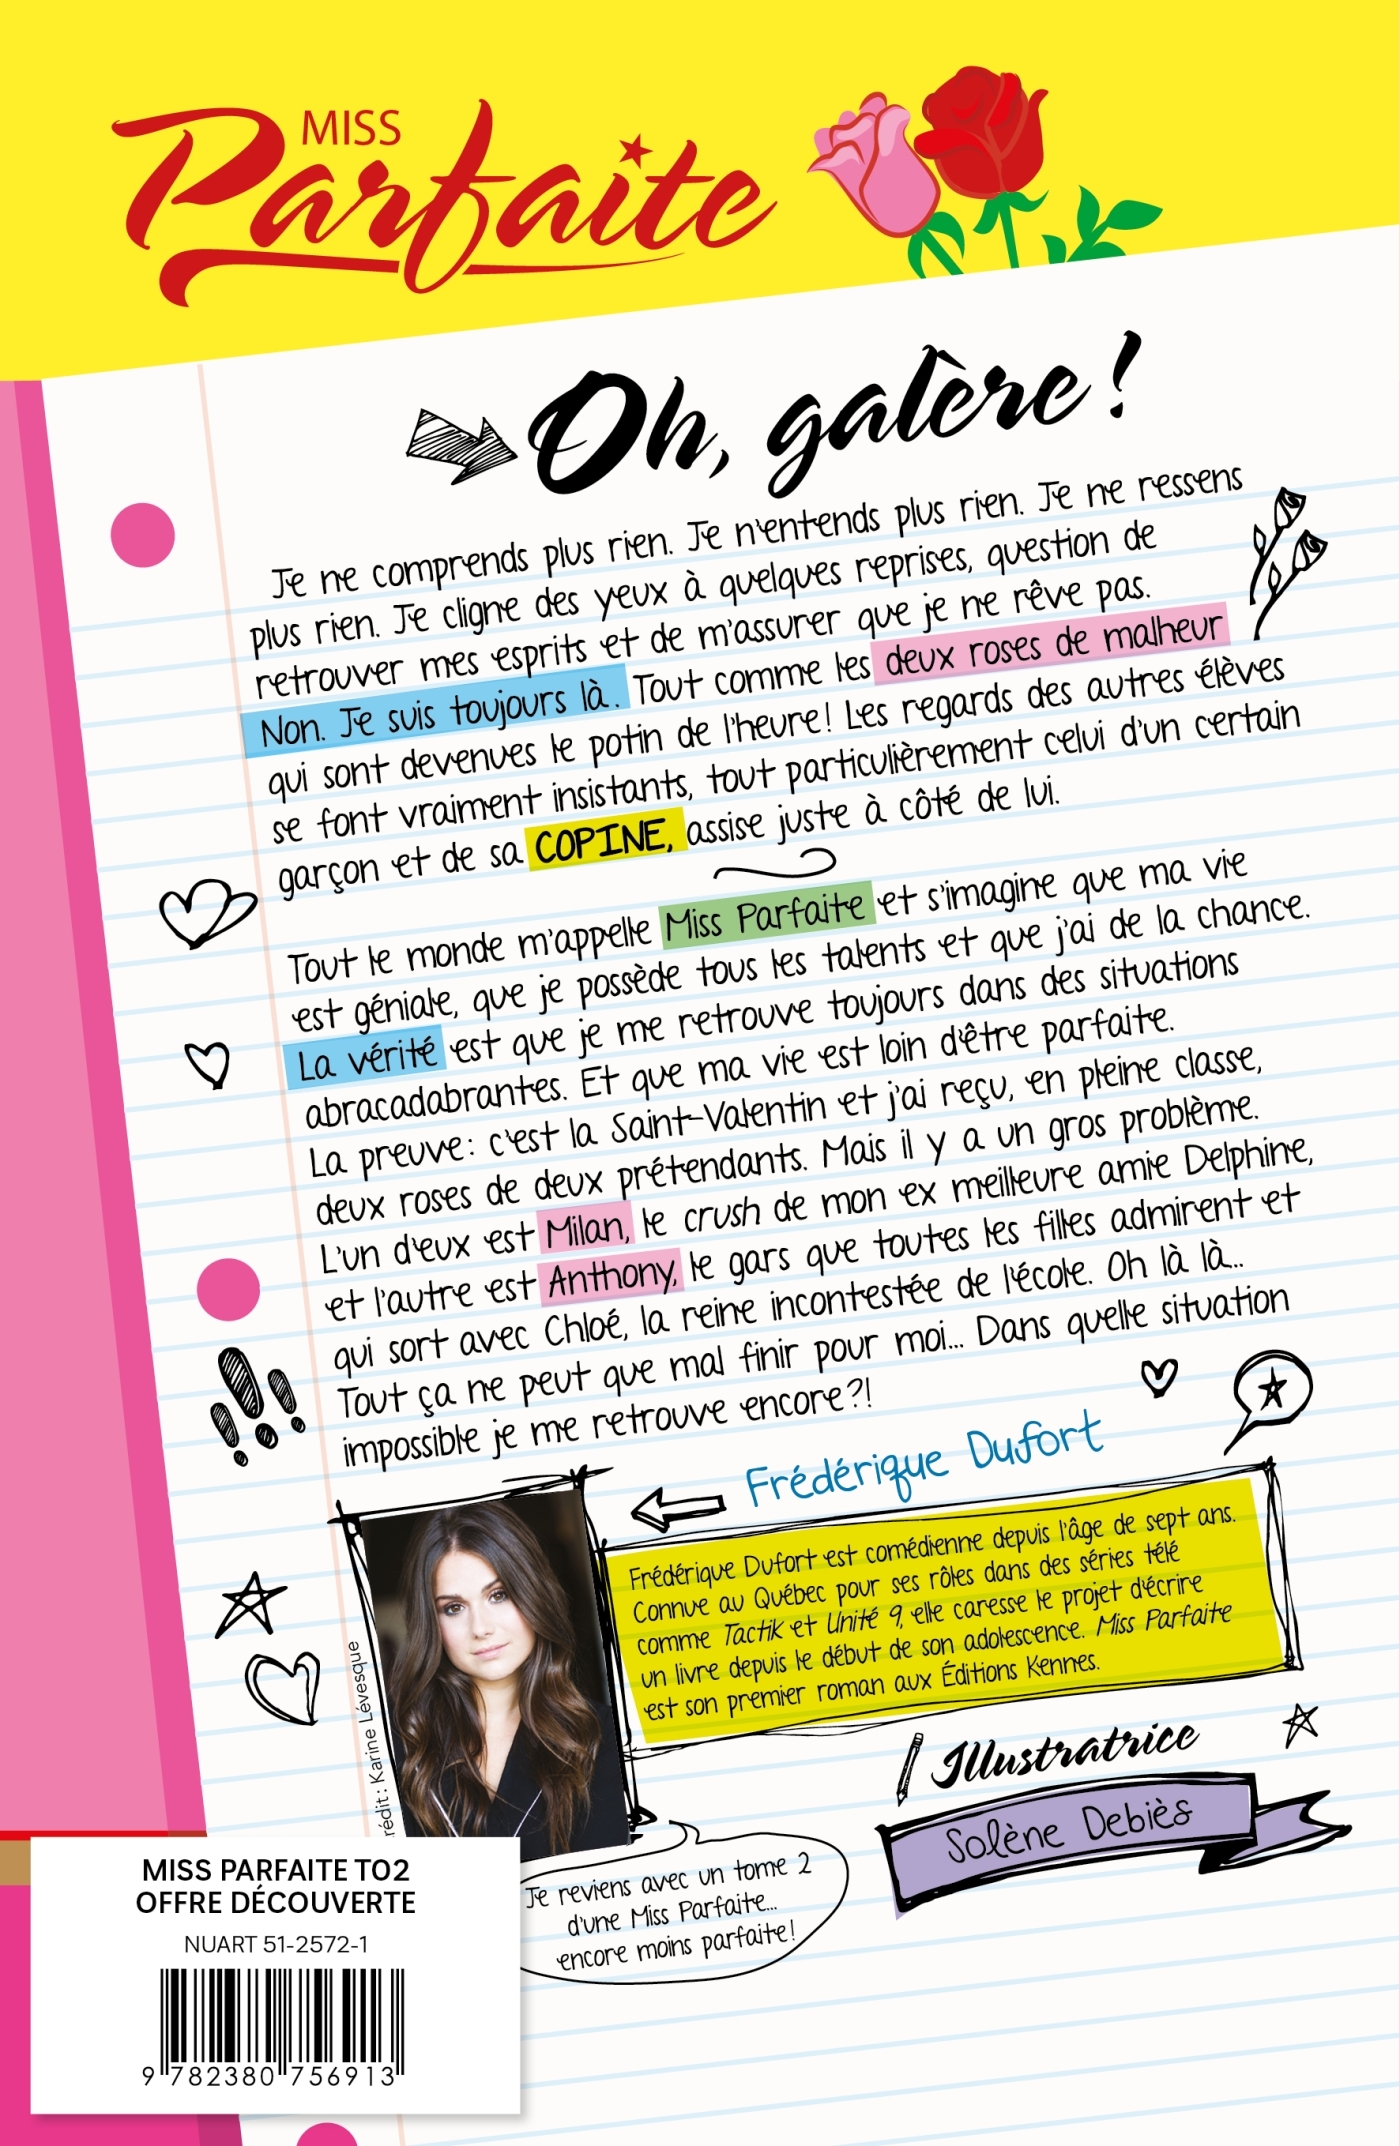 MISS
Parfaite
Oh, galère !
Je ne comprends plus rien. Je n'entends plus rien. Je ne ressens
plus rien. Je cligne des yeux à quelques reprises, question de
retrouver mes esprits et de m'assurer que je ne rêve pas.
Non. Je suis toujours là. Tout comme les deux roses de malheur
qui sont devenues le potin de l'heure! Les regards des autres élèves
se font vraiment insistants, tout particulièrement celui d'un certain
garçon et de sa COPINE, assise juste à côté de lui.
Tout le monde m'appelle Miss Parfaite et s'imagine que ma vie
est géniale, que je possède tous les talents et que j'ai de la chance.
La vérité est que je me retrouve toujours dans des situations
abracadabrantes. Et que ma vie est loin d'être parfaite.
La preuve: c'est la Saint-Valentin et j'ai reçu, en pleine classe,
deux roses de deux prétendants. Mais il y a un gros problème.
L'un d'eux est Milan, le crush de mon ex meilleure amie Delphine,
et l'autre est Anthony, le gars que toutes les filles admirent et
qui sort avec Chloé, la reine incontestée de l'école. Oh là là...
Tout ça ne peut que mal finir pour moi... Dans quelle situation
impossible je me retrouve encore?!
Frédérique Dufort
Frédérique Dufort est comédienne depuis l'âge de sept ans.
Connue au Québec pour ses rôles dans des séries télé
comme Tactik et Unité 9, elle caresse le projet d'écrire
un livre depuis le début de son adolescence. Miss Parfaite
est son premier roman aux Éditions Kennes.
rédit : Karine Lévesque
Illustratrice
Solène Debiès
Je reviens avec un tome 2
d'une Miss Parfaite...
encore moins parfaite!
MISS PARFAITE TO2
OFFRE DÉCOUVERTE
NUART 51-2572-1
9 782380 756913